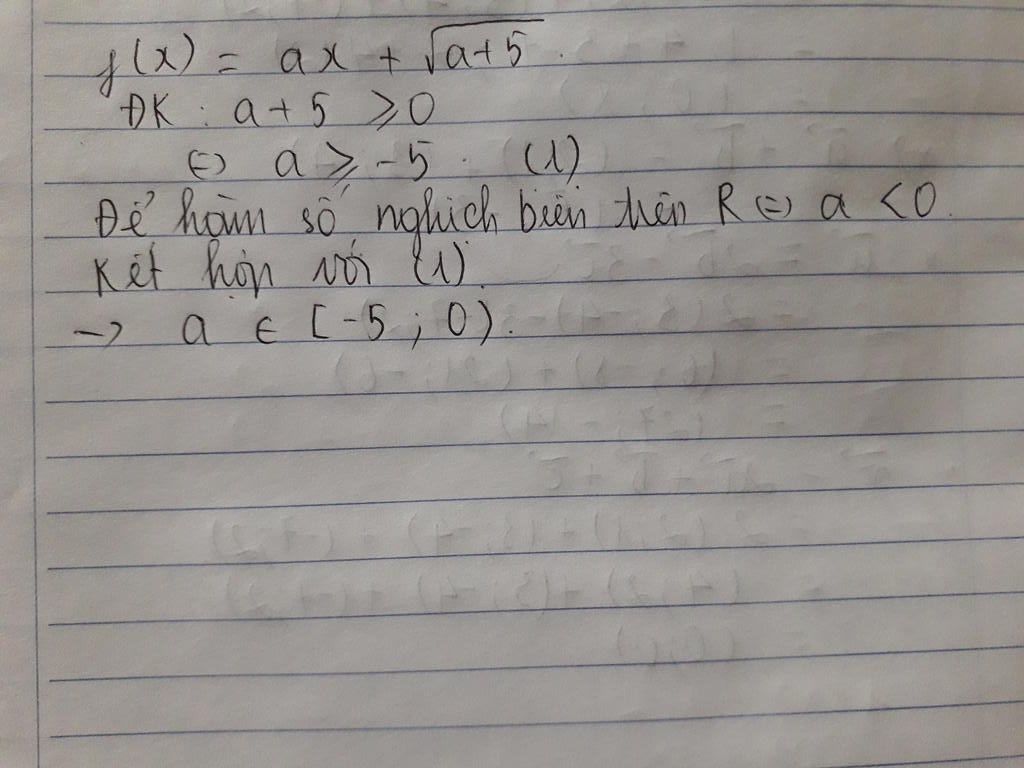 f(x) = ax + √(a+5) .
ĐK : a + 5 ⩾ 0
⇔ a ⩾ -5 . (1)
Để hàm số nghịch biến trên R ⇔ a < 0.
Kết hợp với (1).
→ a ∈ [-5 ; 0).